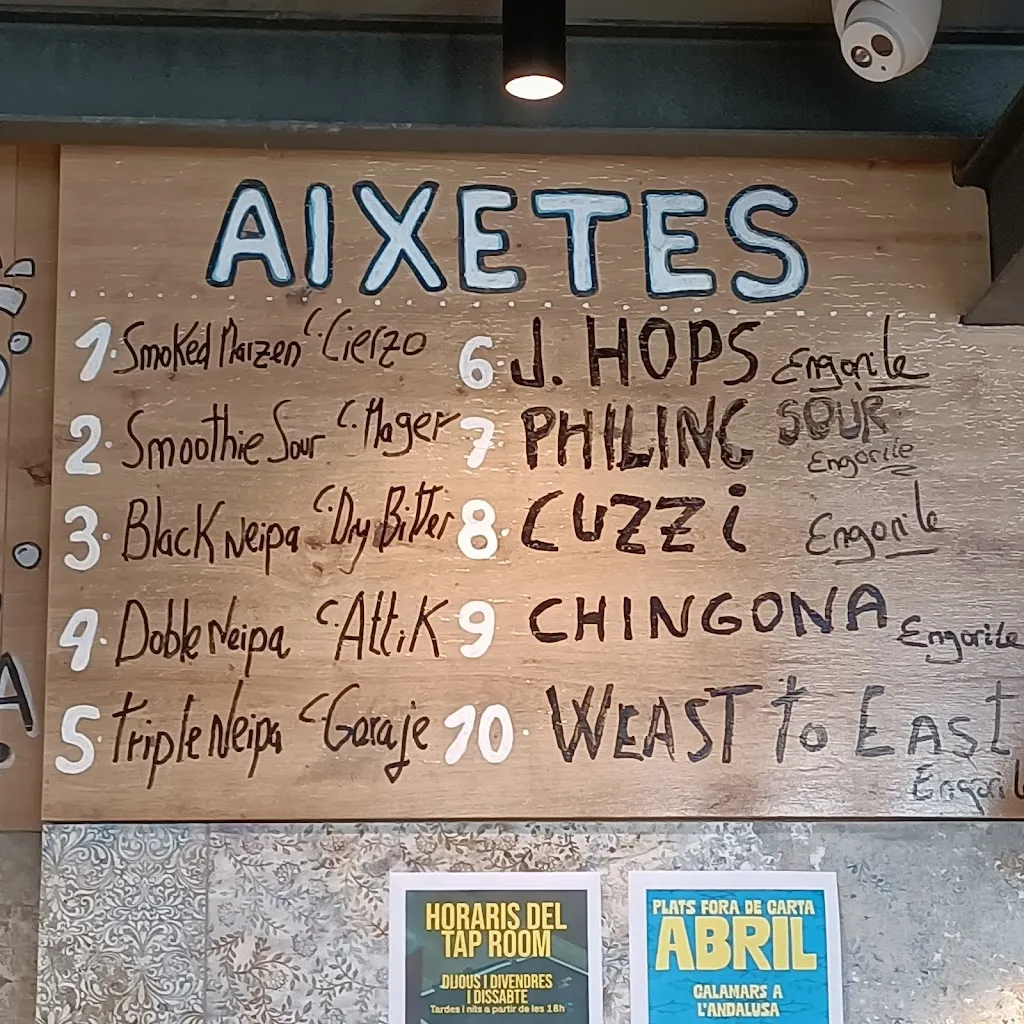 AIXETES
1. Smoked Marzen C. Cierzo
2. Smoothie Sour C. Mager
3. Black Neipa C. Dry Bitter
4. Doble Neipa C. Attik
5. Triple Neipa C. Garaje
6. J. HOPS Engorile
7. PHILING SOUR
Engorile
8. CUZZi Engorile
9 CHINGONA Engorile
10. WEAST to EAST
Engorile
HORARIS DEL
TAP ROOM
DIJOUS I DIVENDRES
I DISSABTE
Tardes i nits a partir de les 18h
PLATS FORA DE CARTA
ABRIL
CALAMARS A
L'ANDALUSA